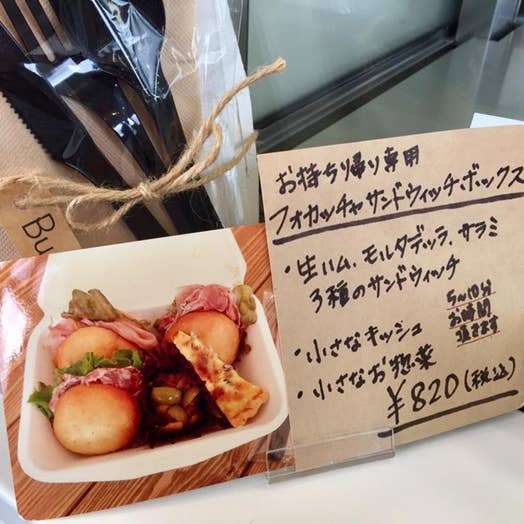 お持ち帰り専用
フォカッチャサンドウィッチボックス
・生ハム、モルタデッラ、サラミ
3種のサンドウィッチ
・小さなキッシュ
・小さなお惣菜
5〜10分
お時間
頂きます
¥820(税込)
Bu